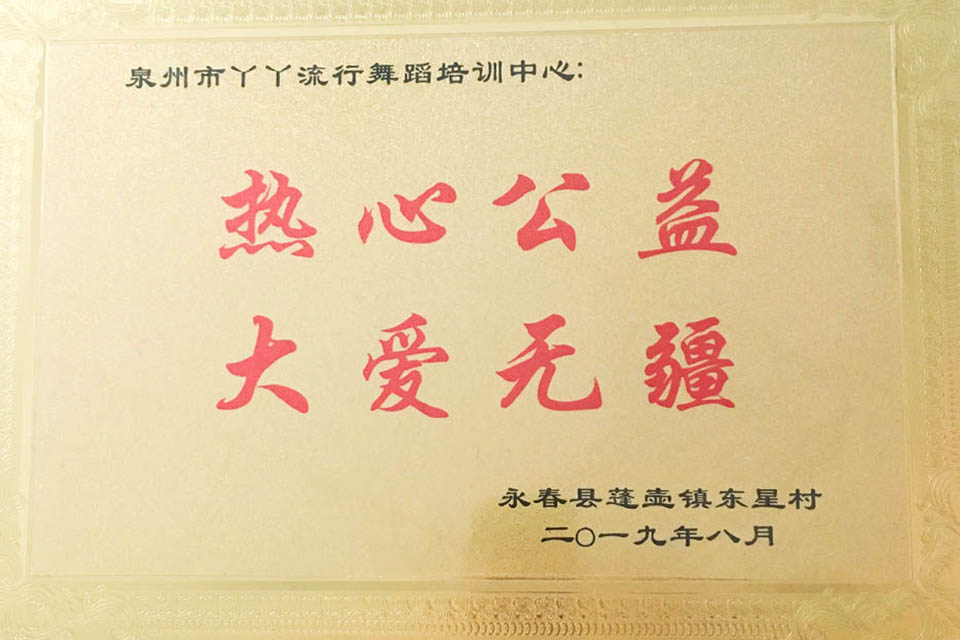 泉州市丫丫流行舞蹈培训中心:
热心公益
大爱无疆
永春县蓬壶镇东星村
二〇一九年八月